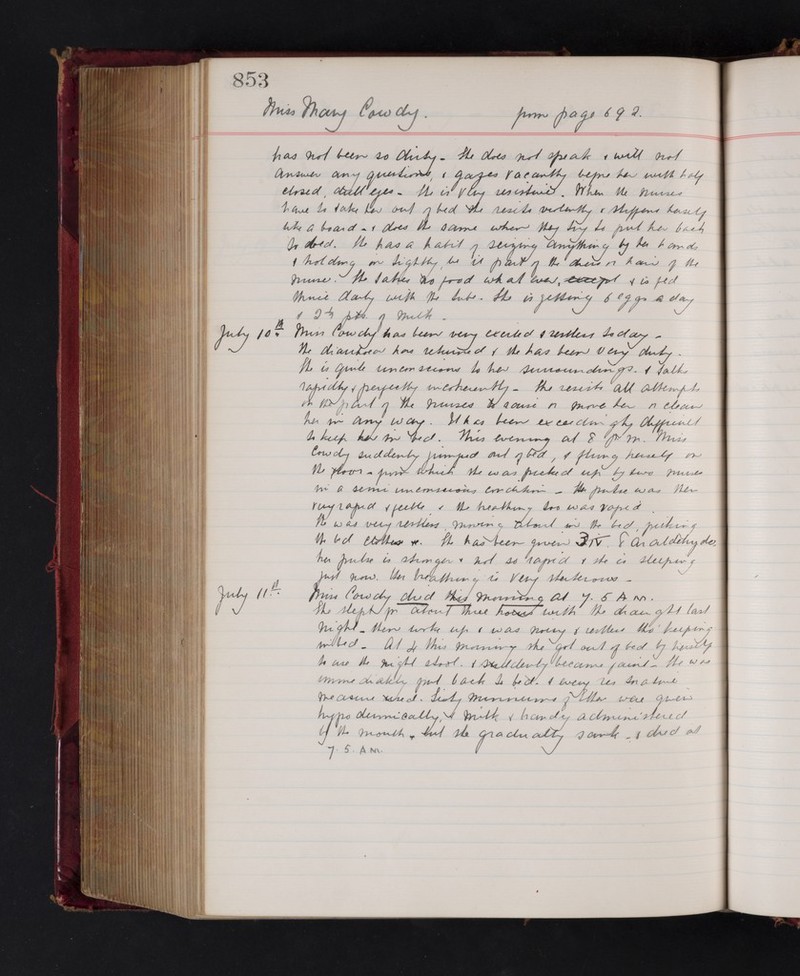 853
Miss Mary Cowdy. from page 692.
has not been so dirty - She does not speak & will not
answer any questions, & gazes vacantly before her with half
closed, dull eyes - She is very resistive. When the nurses
have to take her out of bed she resists violently & stiffens herself
like a board - & does the same when they try to put her back
to bed. She has a habit of seizing anything by her hands
& holding on tightly, be it part of the dress or hair of the
nurse. She takes no food what ever, except & is fed
thrice daily with the tube. She is getting 6 eggs a day
& 2½ pts. of milk.
July 10th. Miss Cowdy has been very excited & restless today -
The diarrhoea has returned & she has been very dirty.
She is quite unconscious to her surroundings. & talks
rapidly & perfectly incoherently - She resists all attempts
on the part of the nurses to raise or move her or clean
her in any way. It has been exceedingly difficult
to keep her in bed. This evening at 8 p.m. Miss
Cowdy suddenly jumped out of bed, & flung herself on
the floor - from which she was picked up by two nurses
in a semi unconscious condition - Her pulse was then
very rapid & feeble, & the breathing too was rapid.
She was very restless, moving about in the bed, picking
the bed clothes. She has been given ʒiv Paraldehyde
her pulse is stronger & not so rapid & she is sleeping
just now. Her breathing is very stertorous -
July 11th. Miss Cowdy died this morning at 7.5 A.M.
She slept for about three hours with the draught last
night - then woke up & was noisy & restless tho' keeping
in bed - At 4 this morning she got out of bed by herself
to use the night stool. & suddenly became faint - She was
immediately put back to bed. & every restorative
measure used. Sixty minimums of Ether were given
hypodermically, & milk & brandy administered
by the mouth, but she gradually sank - & died at
7.5. A.M.